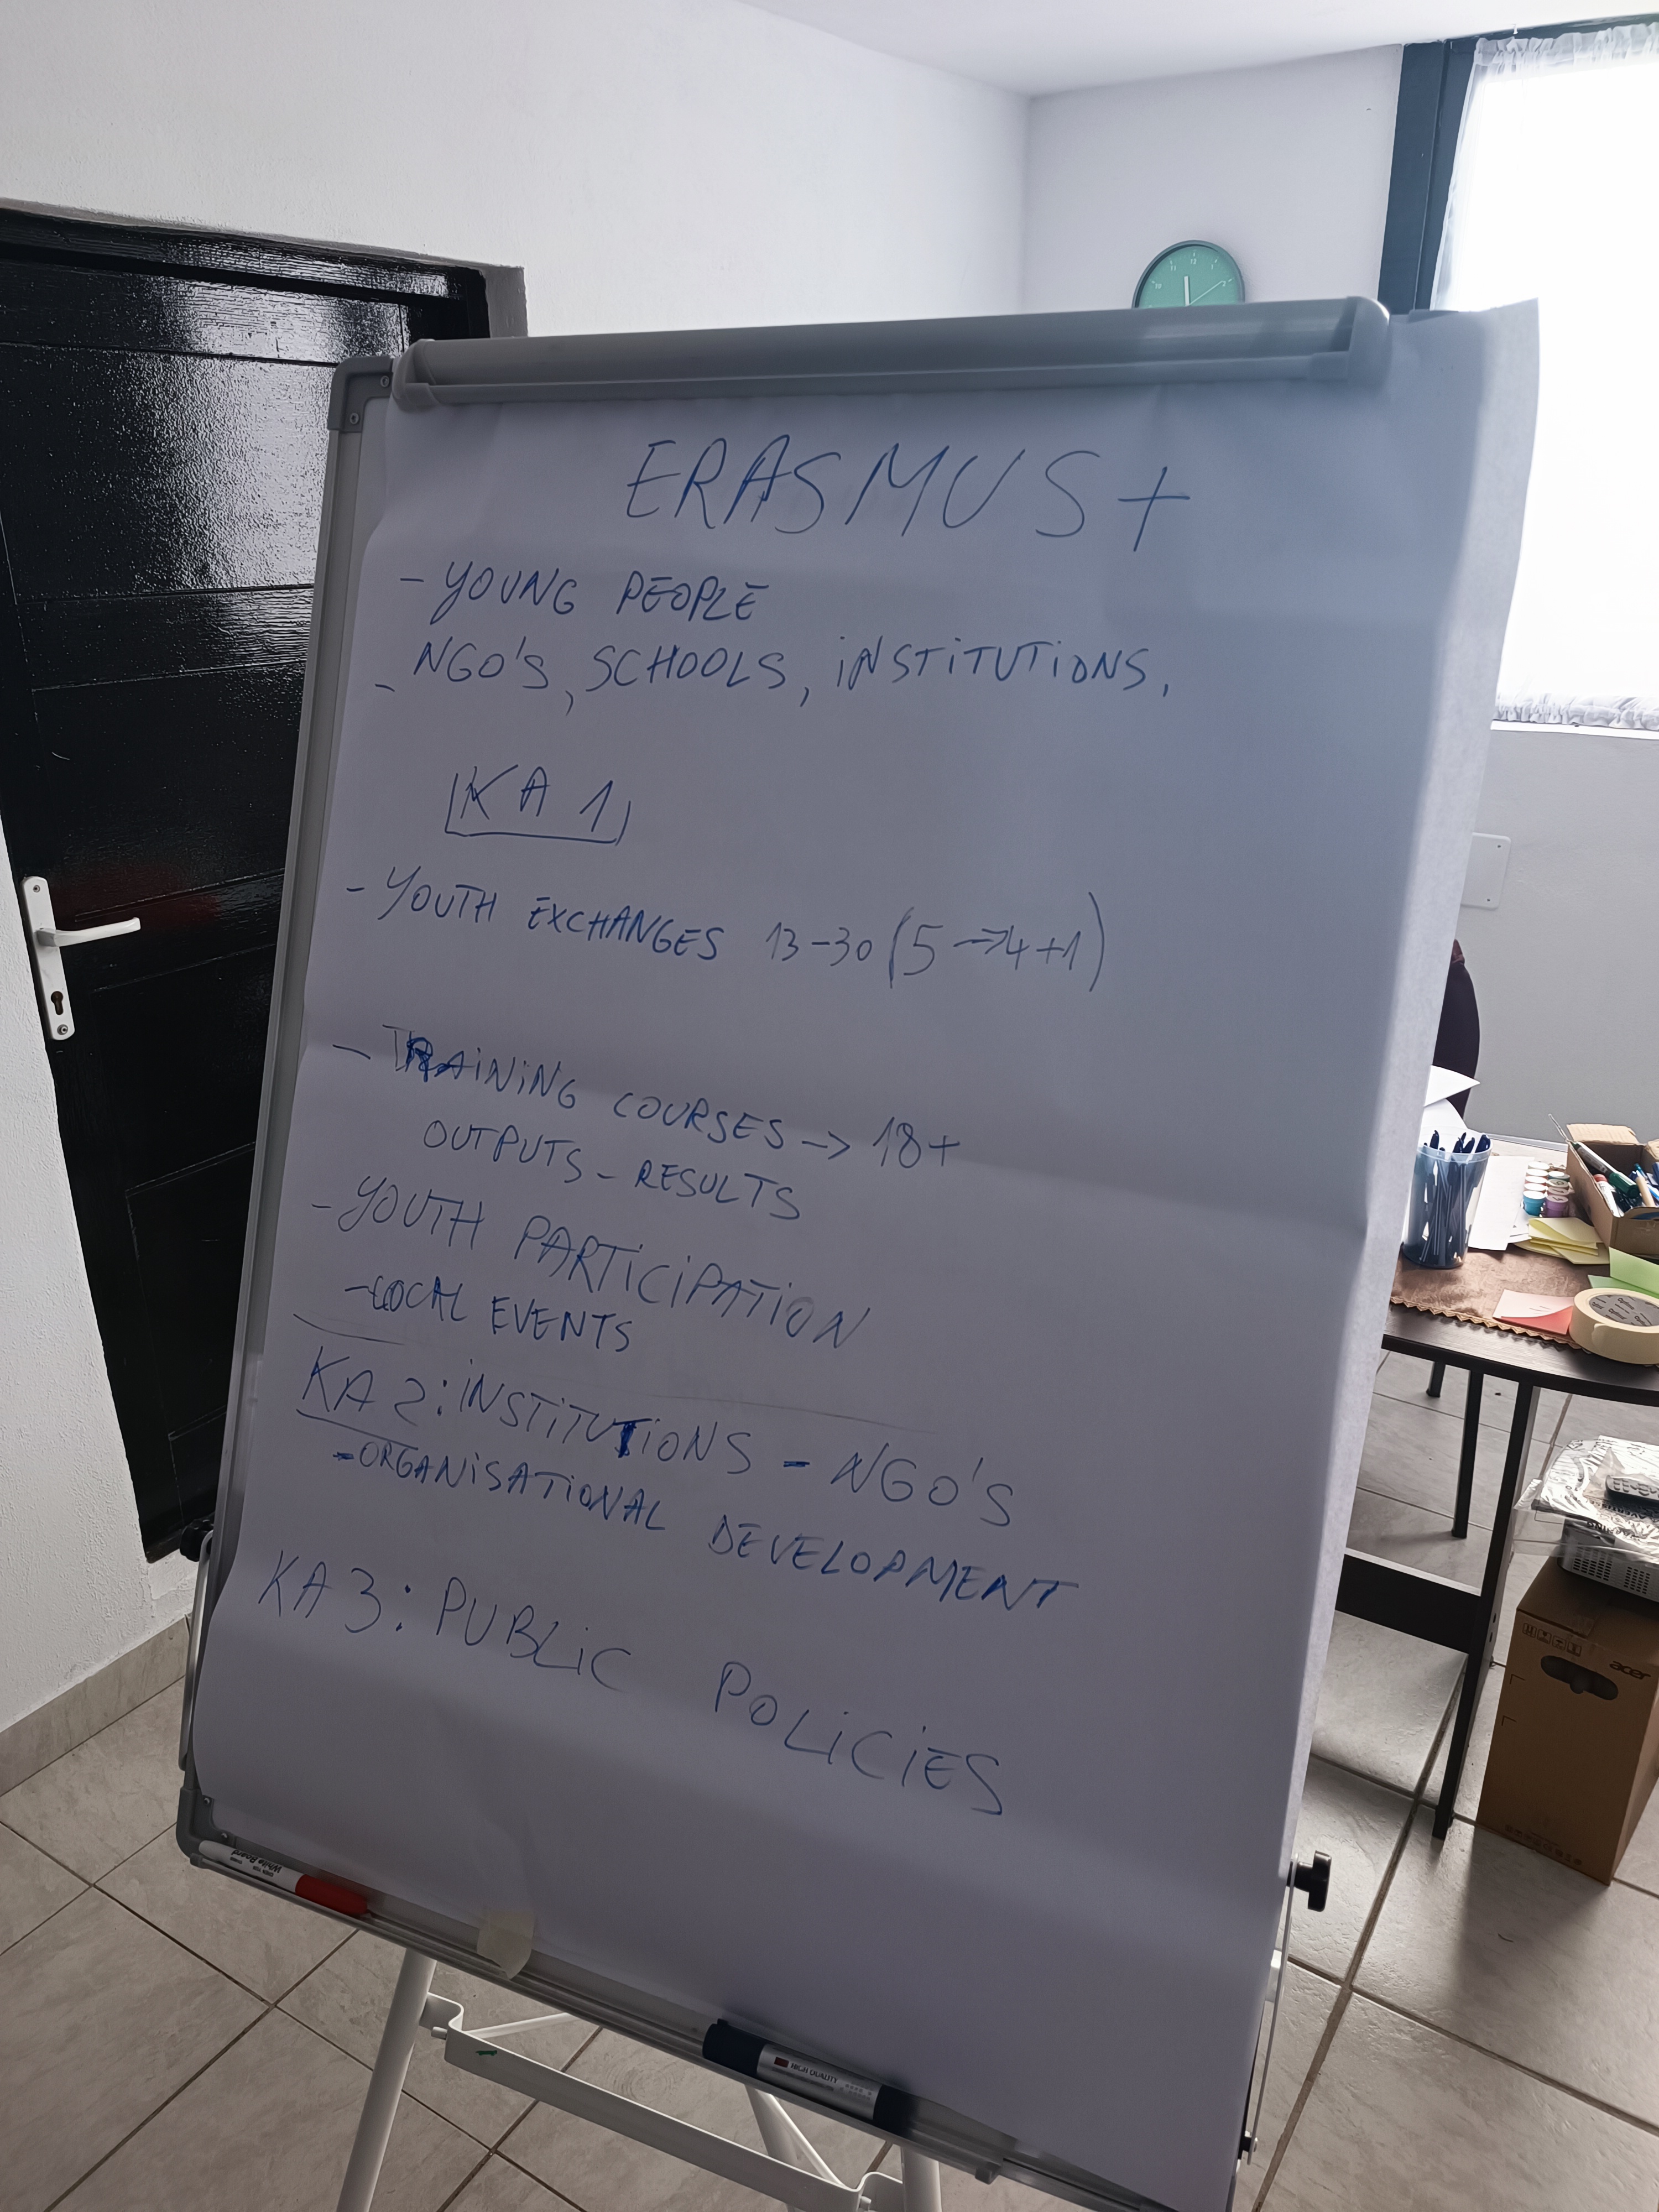 ERASMUS+
- YOUNG PEOPLE
- NGO'S, SCHOOLS, INSTITUTIONS,
KA 1
- YOUTH EXCHANGES 13-30 (5 → 4+1)
- TRAINING COURSES -> 18+
OUTPUTS - RESULTS
- YOUTH PARTICIPATION
- LOCAL EVENTS
KA 2: INSTITUTIONS - NGO'S
- ORGANISATIONAL DEVELOPMENT
KA 3: PUBLIC POLICIES
White Board
HIGH QUALITY
acer